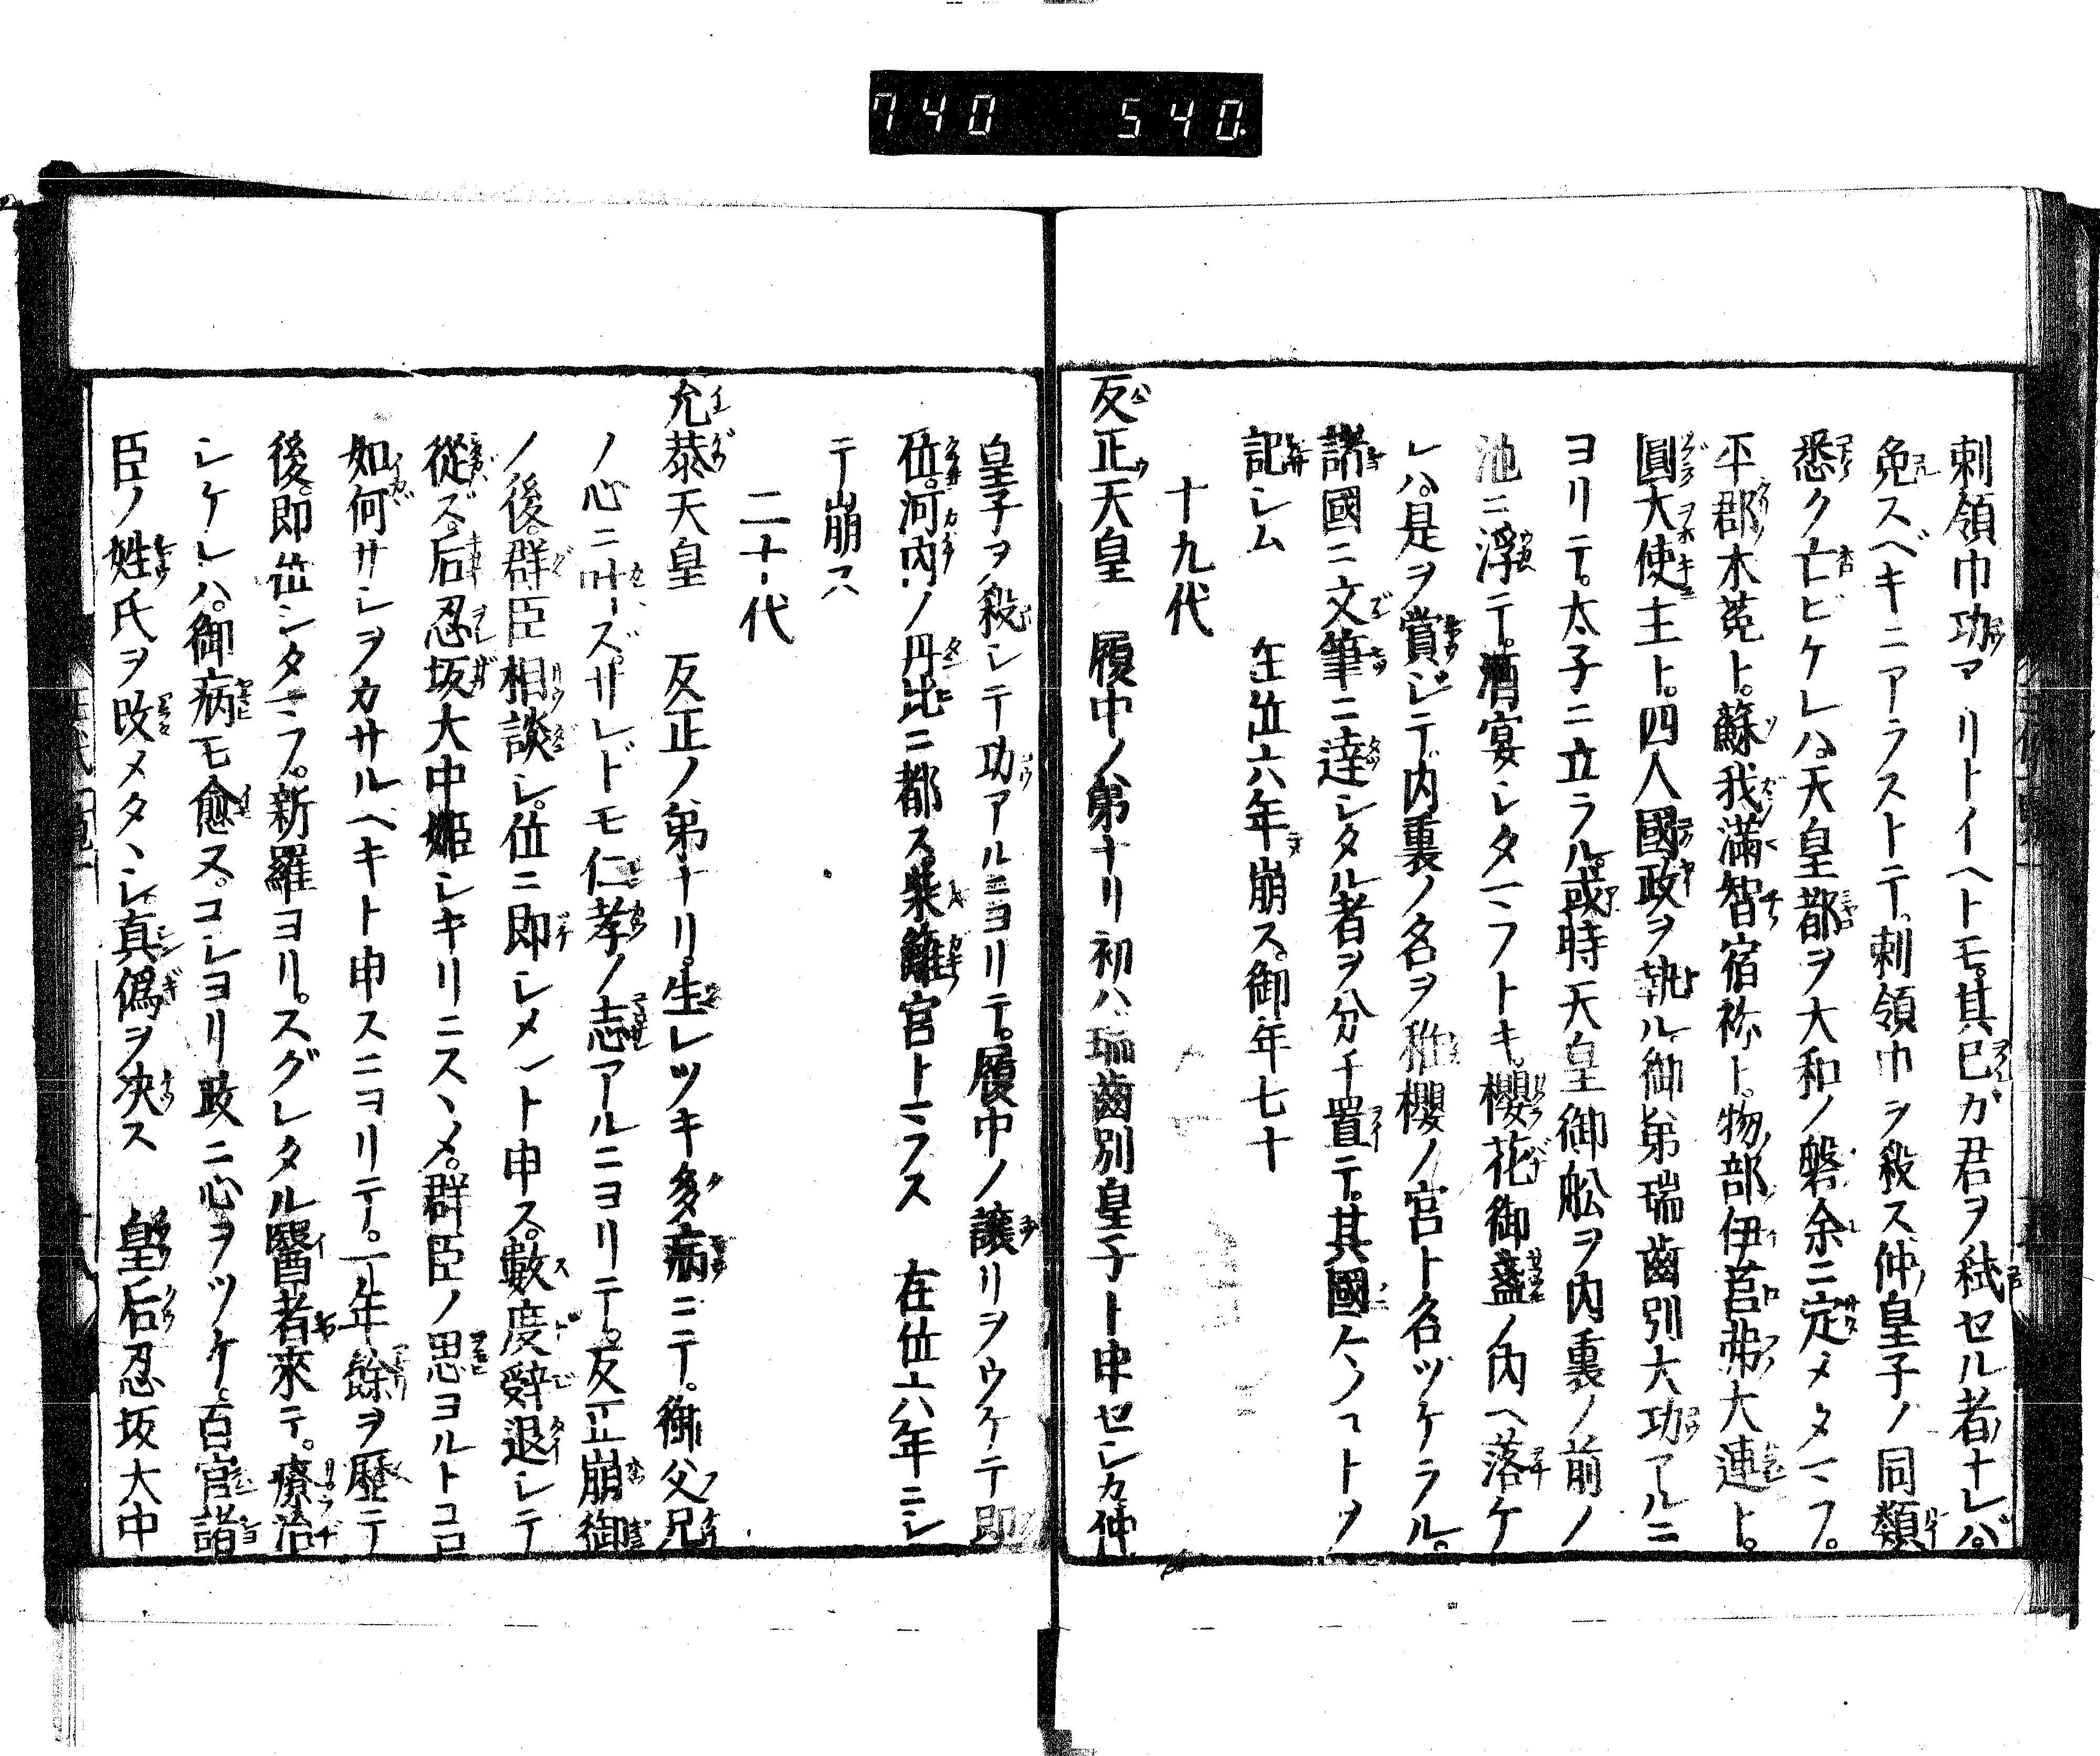 740 540
刺領巾功マリトイヘトモ其己ガ君ヲ弑セル者ナレバ。
免スベキニアラストテ。刺領巾ヲ殺ス仲皇子ノ同類
悉ク亡ビケレハ。天皇都ヲ大和ノ磐余ニ定メタマフ。
平郡木菟ト。蘇我満智宿祢ト。物部伊莒弗大連ト。
圓大使主ト。四人國政ヲ執ル御弟瑞齒別大功アルニ
ヨリテ。太子ニ立ラル。或時天皇御舩ヲ内裏ノ前ノ
池ニ浮テ。酒宴シタマフトキ。櫻花御盞ノ内ヘ落ケ
レハ。是ヲ賞ジテ内裏ノ名ヲ稚櫻ノ宮ト名ツケラル。
諸國ニ文筆ニ達シタル者ヲ分チ置テ。其國々ノヿトヲ
記シム 在位六年崩ス。御年七十
十九代
反正天皇 履中ノ弟ナリ初ハ瑞齒別皇子ト申セシカ仲
皇子ヲ殺シテ功アルニヨリテ。履中ノ讓リヲウケテ即
位。河内ノ丹比ニ都ス柴籬宮トイフス 在位六年ニシ
テ崩ス
二十代
允恭天皇 反正ノ弟ナリ。生レツキ多病ニテ。御父兄
ノ心ニ叶ハズ。サレドモ仁孝ノ志アルニヨリテ。反正崩御
ノ後。群臣相談シ。位ニ即シメント申ス。數度辞退シテ
從ズ。后忍坂大中姫シキリニスヽメ。群臣ノ思ヨルトコロ
如何サシヲカサルヘキト申スニヨリテ。一年餘ヲ歴テ
後。即位シタマフ。新羅ヨリ。スグレタル醫者來テ。療治
シケレハ。御病モ愈ヌ。コレヨリ政ニ心ヲツケ。百官諸
臣ノ姓氏ヲ改メタヽシ真偽ヲ决ス 皇后忍坂大中